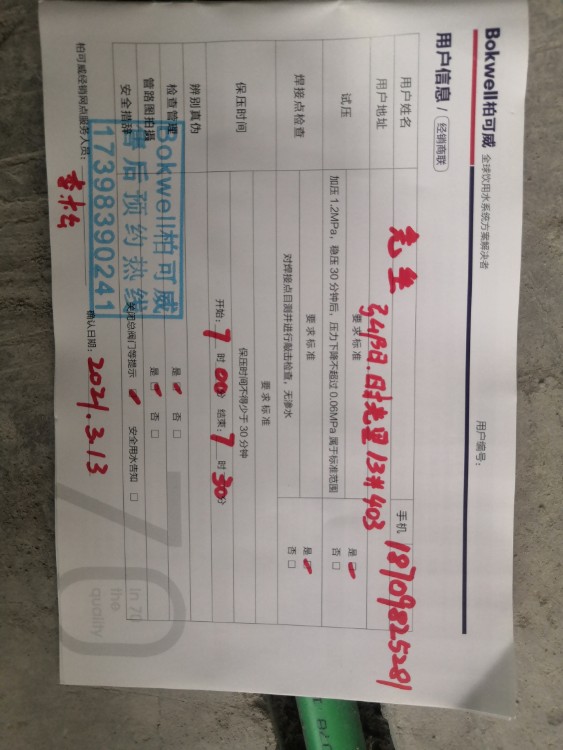 Bokwell柏可威 全球饮用水系统方案解决者
用户编号:
用户信息 / 经销商联
用户姓名 先生 手机 18709825281
用户地址 时光里13#403
试压 要求标准
加压1.2MPa,稳压30分钟后,压力下降不超过0.06MPa属于标准范围 是 否
焊接点检查 要求标准
对焊接点目测并进行敲击检查,无渗水 是 否
保压时间 要求标准
保压时间不得少于30分钟
开始: 7 时 00 分 结束: 7 时 30 分
辨别真伪
检查管理 是 否
管路图拍摄 是 否
安全措辞 关闭总阀门等提示 安全用水告知
Bokwell柏可威
售后预约热线
17398390241
柏可威经销网点服务人员: 确认日期: 2024.3.13
70
In 70
the
quality